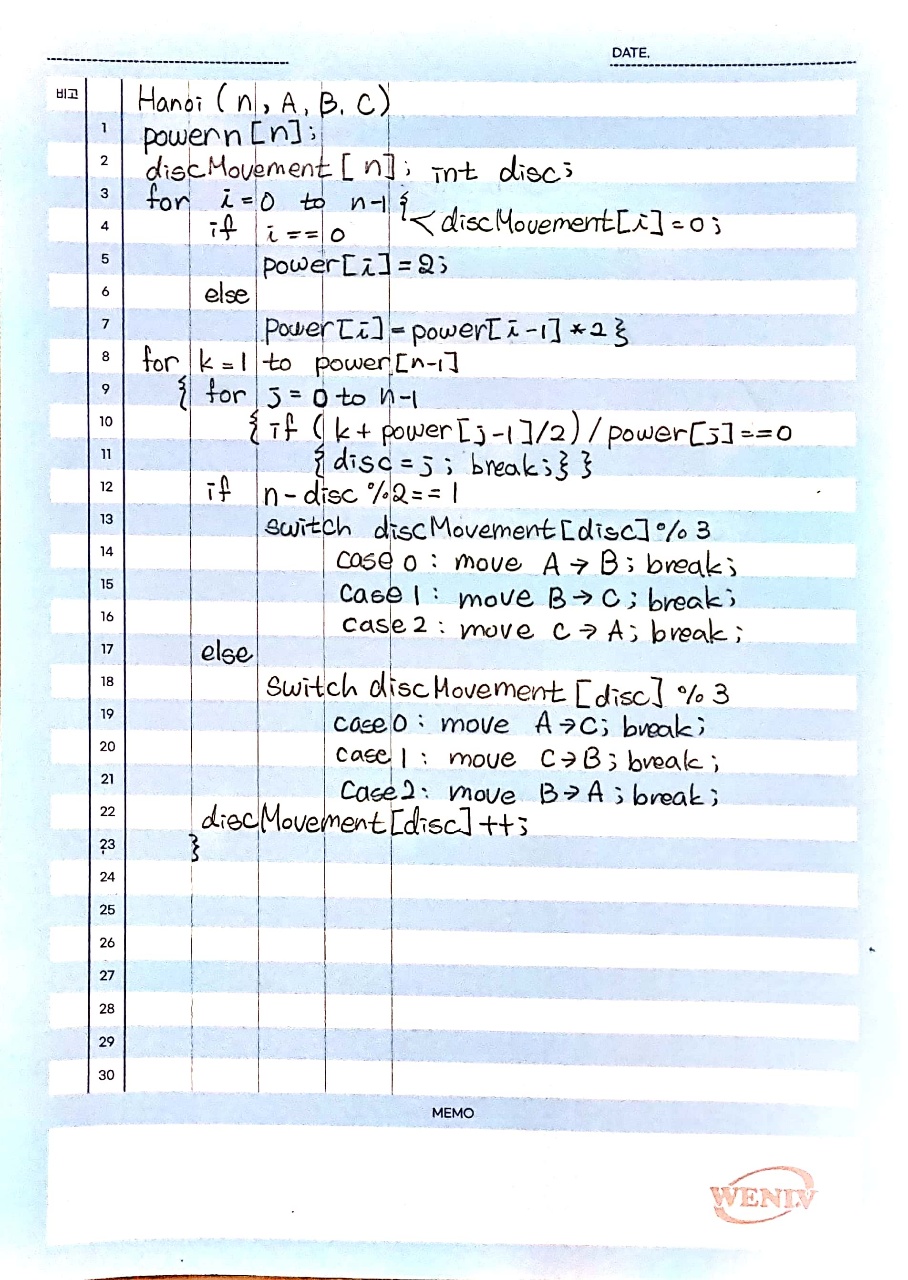 DATE.
비고
Hanoi (n, A, B, C)
1 powern[n];
2 discMovement[n]; int disc;
3 for i=0 to n-1 {
4 if i==0 < discMovement[i]=0;
5 power[i]=2;
6 else
7 power[i]=power[i-1]*2}
8 for k=1 to power[n-1]
9 { for j=0 to n-1
10 { if (k+power[j-1]/2)/power[j]==0
11 { disc=j; break;} }
12 if n-disc %2==1
13 switch discMovement[disc]%3
14 case 0: move A→B; break;
15 case 1: move B→C; break;
16 case 2: move C→A; break;
17 else
18 switch discMovement[disc] %3
19 case 0: move A→C; break;
20 case 1: move C→B; break;
21 case 2: move B→A; break;
22 discMovement[disc]++;
23 }
24
25
26
27
28
29
30
MEMO
WENIV